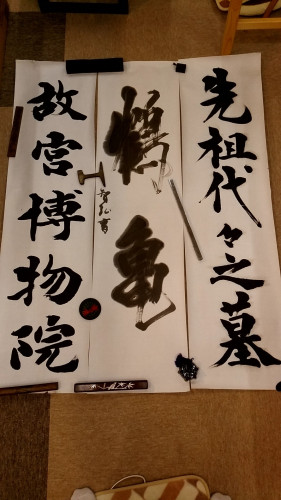 先祖代々之墓
鶴亀
故宮博物院